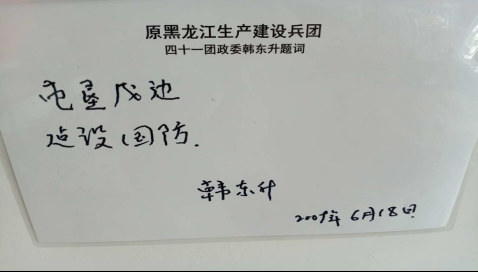 原黑龙江生产建设兵团
四十一团政委韩东升题词
屯垦戍边
建设国防.
韩东升
2009年6月18日